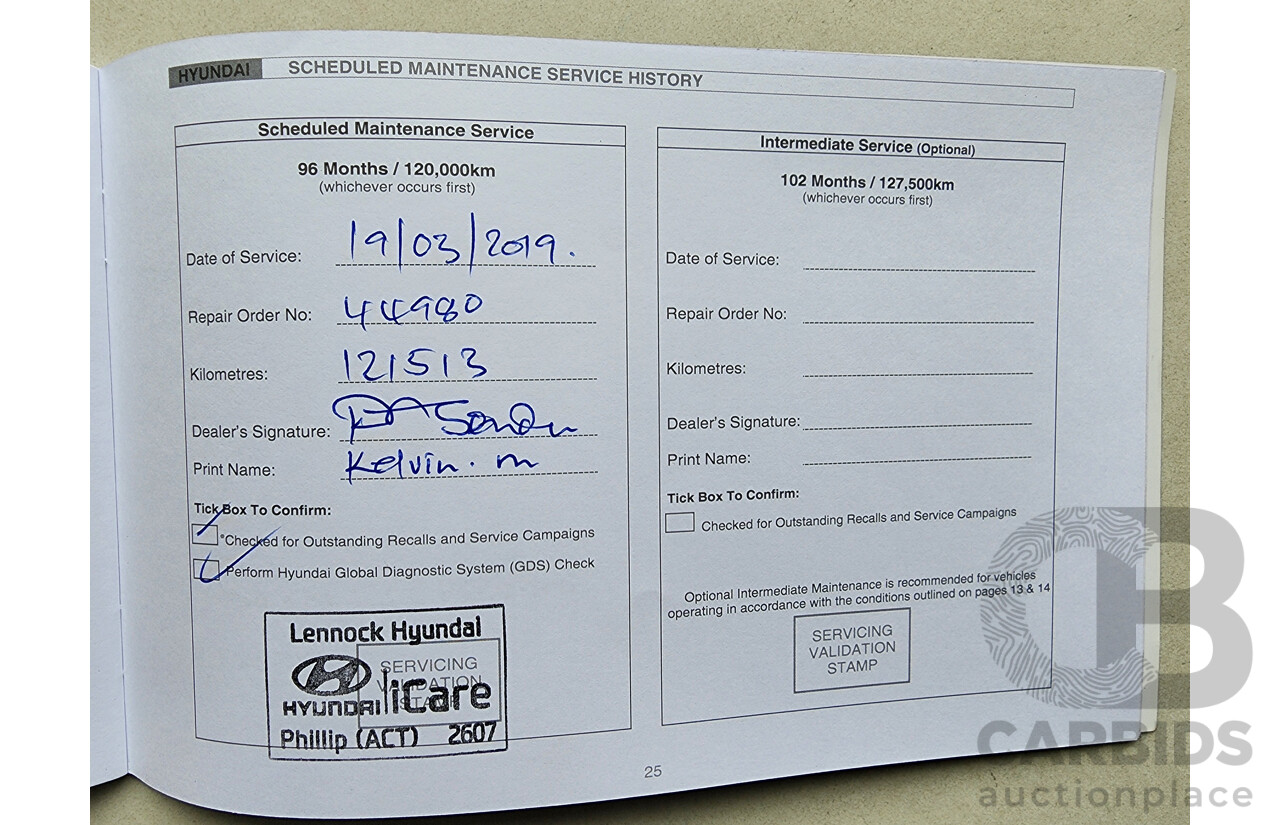 HYUNDAI SCHEDULED MAINTENANCE SERVICE HISTORY
Scheduled Maintenance Service
96 Months / 120,000km
(whichever occurs first)
Date of Service: 19/03/2019.
Repair Order No: 44980
Kilometres: 121513
Dealer's Signature:
Print Name: Kelvin. m
Tick Box To Confirm:
*Checked for Outstanding Recalls and Service Campaigns
Perform Hyundai Global Diagnostic System (GDS) Check
Lennock Hyundai
SERVICING
VALIDATION
STAMP
HYUNDAI iCare
Phillip (ACT) 2607
Intermediate Service (Optional)
102 Months / 127,500km
(whichever occurs first)
Date of Service:
Repair Order No:
Kilometres:
Dealer's Signature:
Print Name:
Tick Box To Confirm:
Checked for Outstanding Recalls and Service Campaigns
Optional Intermediate Maintenance is recommended for vehicles
operating in accordance with the conditions outlined on pages 13 & 14
SERVICING
VALIDATION
STAMP
25
CB
CARBIDS
auctionplace